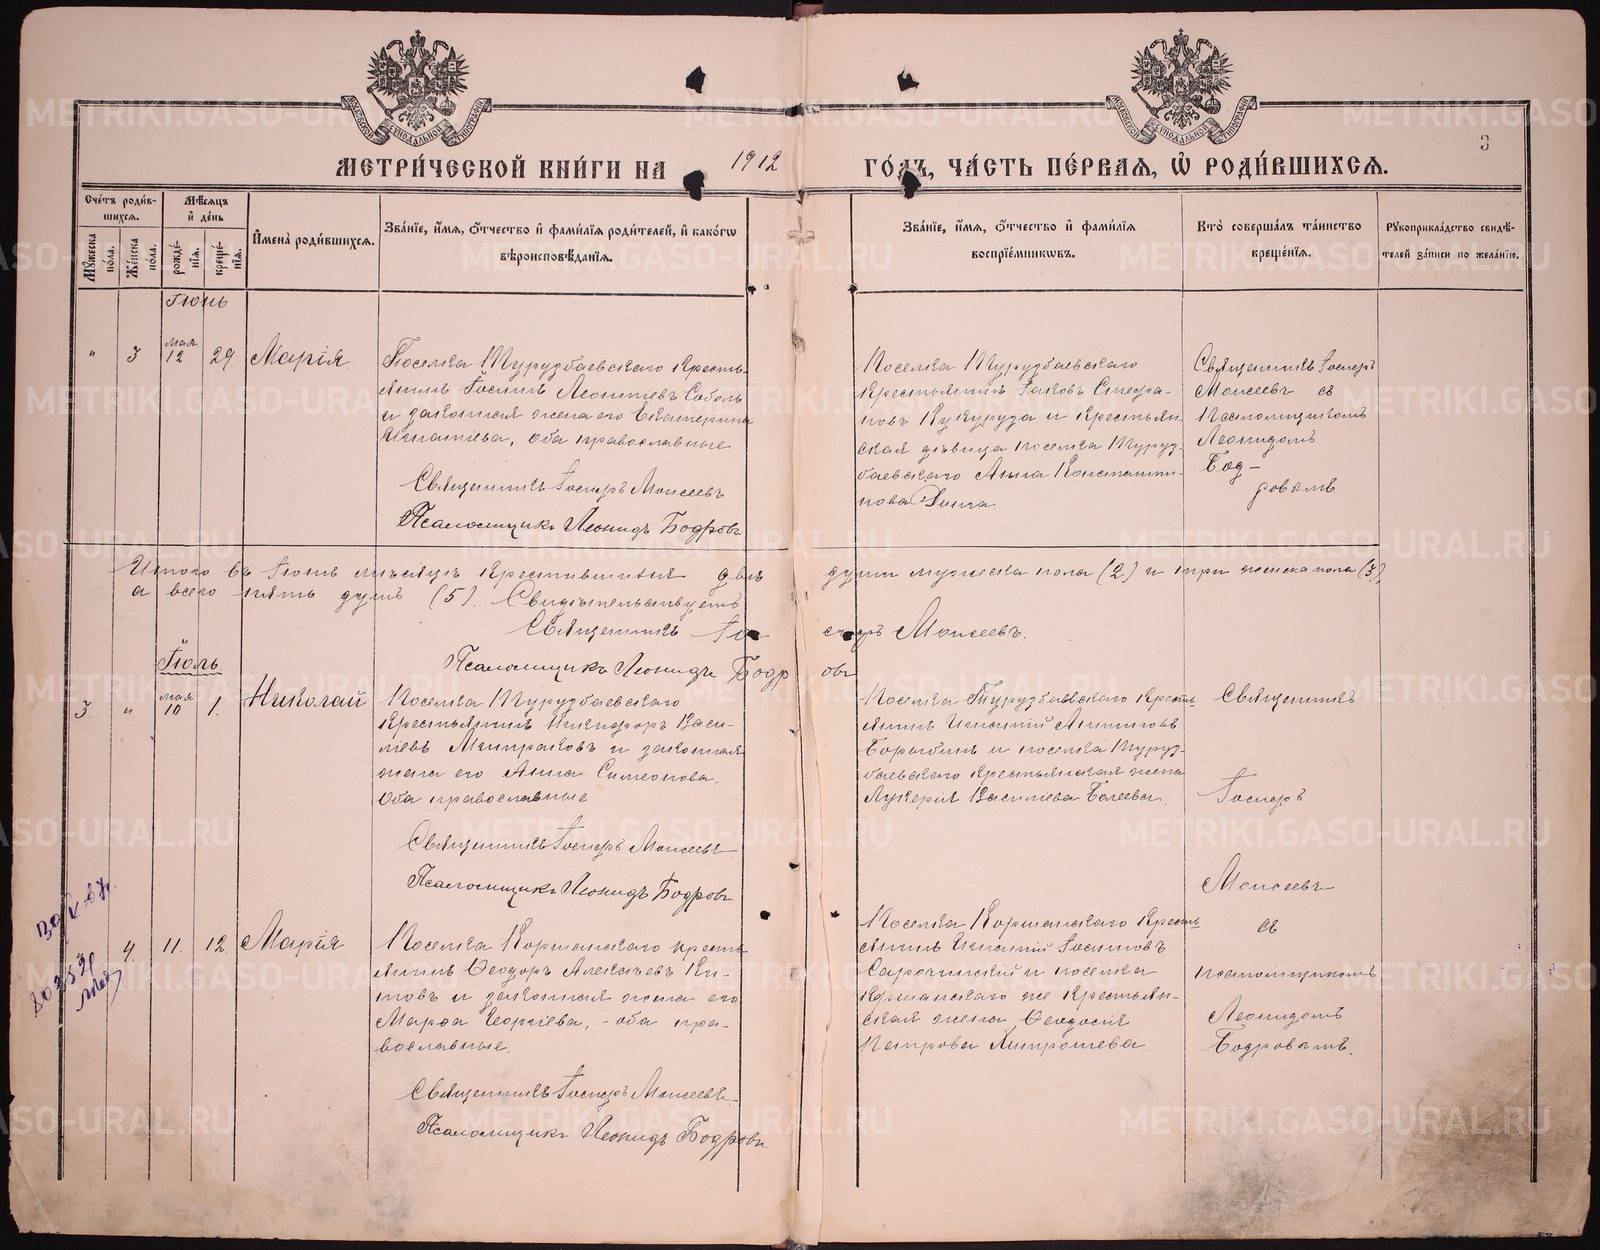 МЕТРИ́ЧЕСКОЙ КНИ́ГИ НА 1912 ГО́ДЪ, ЧА́СТЬ ПЕ́РВАЯ, Ѡ РОДИ́ВШИХСЯ.
3
Сче́тъ роди́в-
шихся.
Мѣ́сяцъ
и де́нь
Му́жеска
по́ла.
Же́нска
по́ла.
рожде́-
нія.
креще́-
нія.
Имена̀ роди́вшихся.
Зва́ніе, и́мя, о́тчество и фами́лія роди́телей, и како́гѡ
вѣроисповѣ́данія.
Зва́ніе, и́мя, о́тчество и фами́лія
воспріе́мниковъ.
Кто̀ соверша́лъ та́инство
креще́нія.
Рукоприкла́дство свидѣ́-
телей за́писи по жела́нію.
Іюнь
„ 3 мая 12 29 Марія.
Поселка Турузбаевскаго кресть-
янинъ Іосифъ Леонтіевъ Соболь
и законная жена его Екатерина
Игнатіева, оба православные
Священникъ Іосифъ Моисеевъ
Псаломщикъ Леонидъ Бодровъ
Поселка Турузбаевскаго
крестьянинъ Іаковъ Стефа-
новъ Кукуруза и крестьян
ская дѣвица поселка Туруз-
баевскаго Анна Константи-
нова
Священникъ Іосифъ
Моисеевъ съ
Псаломщикомъ
Леонидомъ
Бод-
ровымъ
Итого въ Іюнѣ мѣсяцѣ крестившихся двѣ души мужеска пола (2) и три женска пола (3),
а всего пять душъ (5). Свидѣтельствуетъ
Священникъ Іосифъ Моисеевъ.
Псаломщикъ Леонидъ Бодровъ
Іюль.
3. „ мая 10 1. Николай
Поселка Турузбаевскаго
крестьянинъ Никифоръ Васи-
льевъ Митраковъ и законная
жена его Анна Симеонова,
оба православные
Священникъ Іосифъ Моисеевъ
Псаломщикъ Леонидъ Бодровъ
Поселка Турузбаевскаго кресть
янинъ Игнатій Антиповъ
Борыбинъ и поселка Туруз-
баевскаго крестьянская жена
Лукерія Василіева
Священникъ
Іосифъ
Моисеевъ
съ
псаломщикомъ
Леонидомъ
Бодровымъ.
4. 11. 12. Марія
Поселка Коршанскаго кресть
янинъ Ѳеодоръ Алексѣевъ Ки-
товъ и законная жена его
Марѳа Георгіева, - оба пра-
вославные.
Священникъ Іосифъ Моисеевъ
Псаломщикъ Леонидъ Бодровъ
Поселка Коршанскаго кресть
янинъ Игнатій Іосифовъ
Сарочинскій и поселка
Коршанскаго же крестьян-
ская жена Ѳеодосія
Петрова Митрошева.